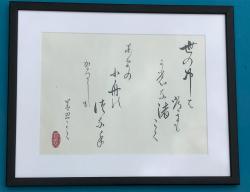 世の中は
常にも
がもな渚こぐ
あまの
小舟の
つな手
かなしも